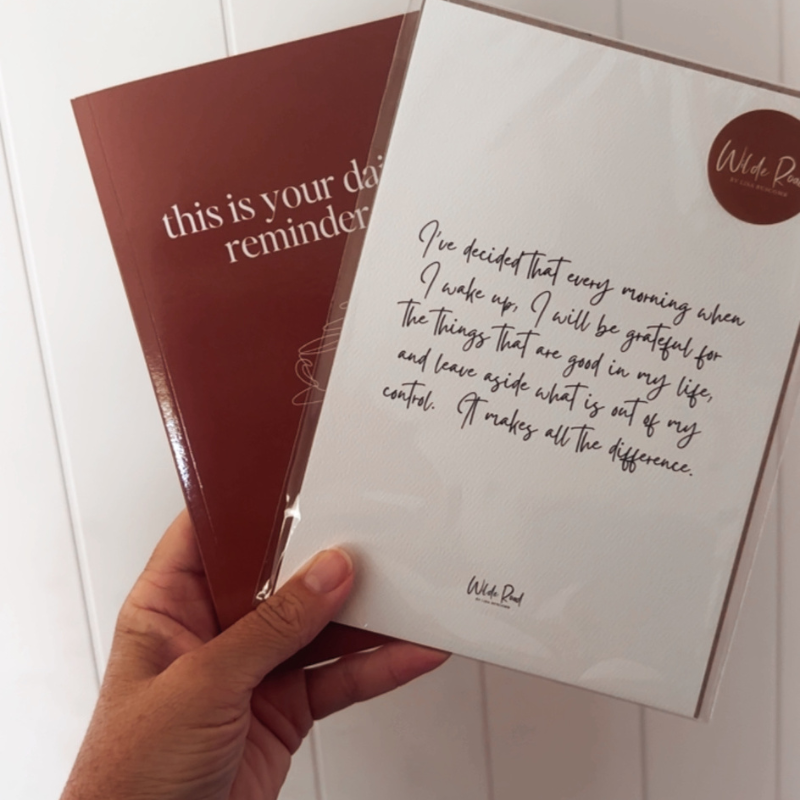 this is your dai
reminder
Wilde Roa
I've decided that every morning when
I wake up, I will be grateful for
the things that are good in my life,
and leave aside what is out of my
control. It makes all the difference.
Wilde Road